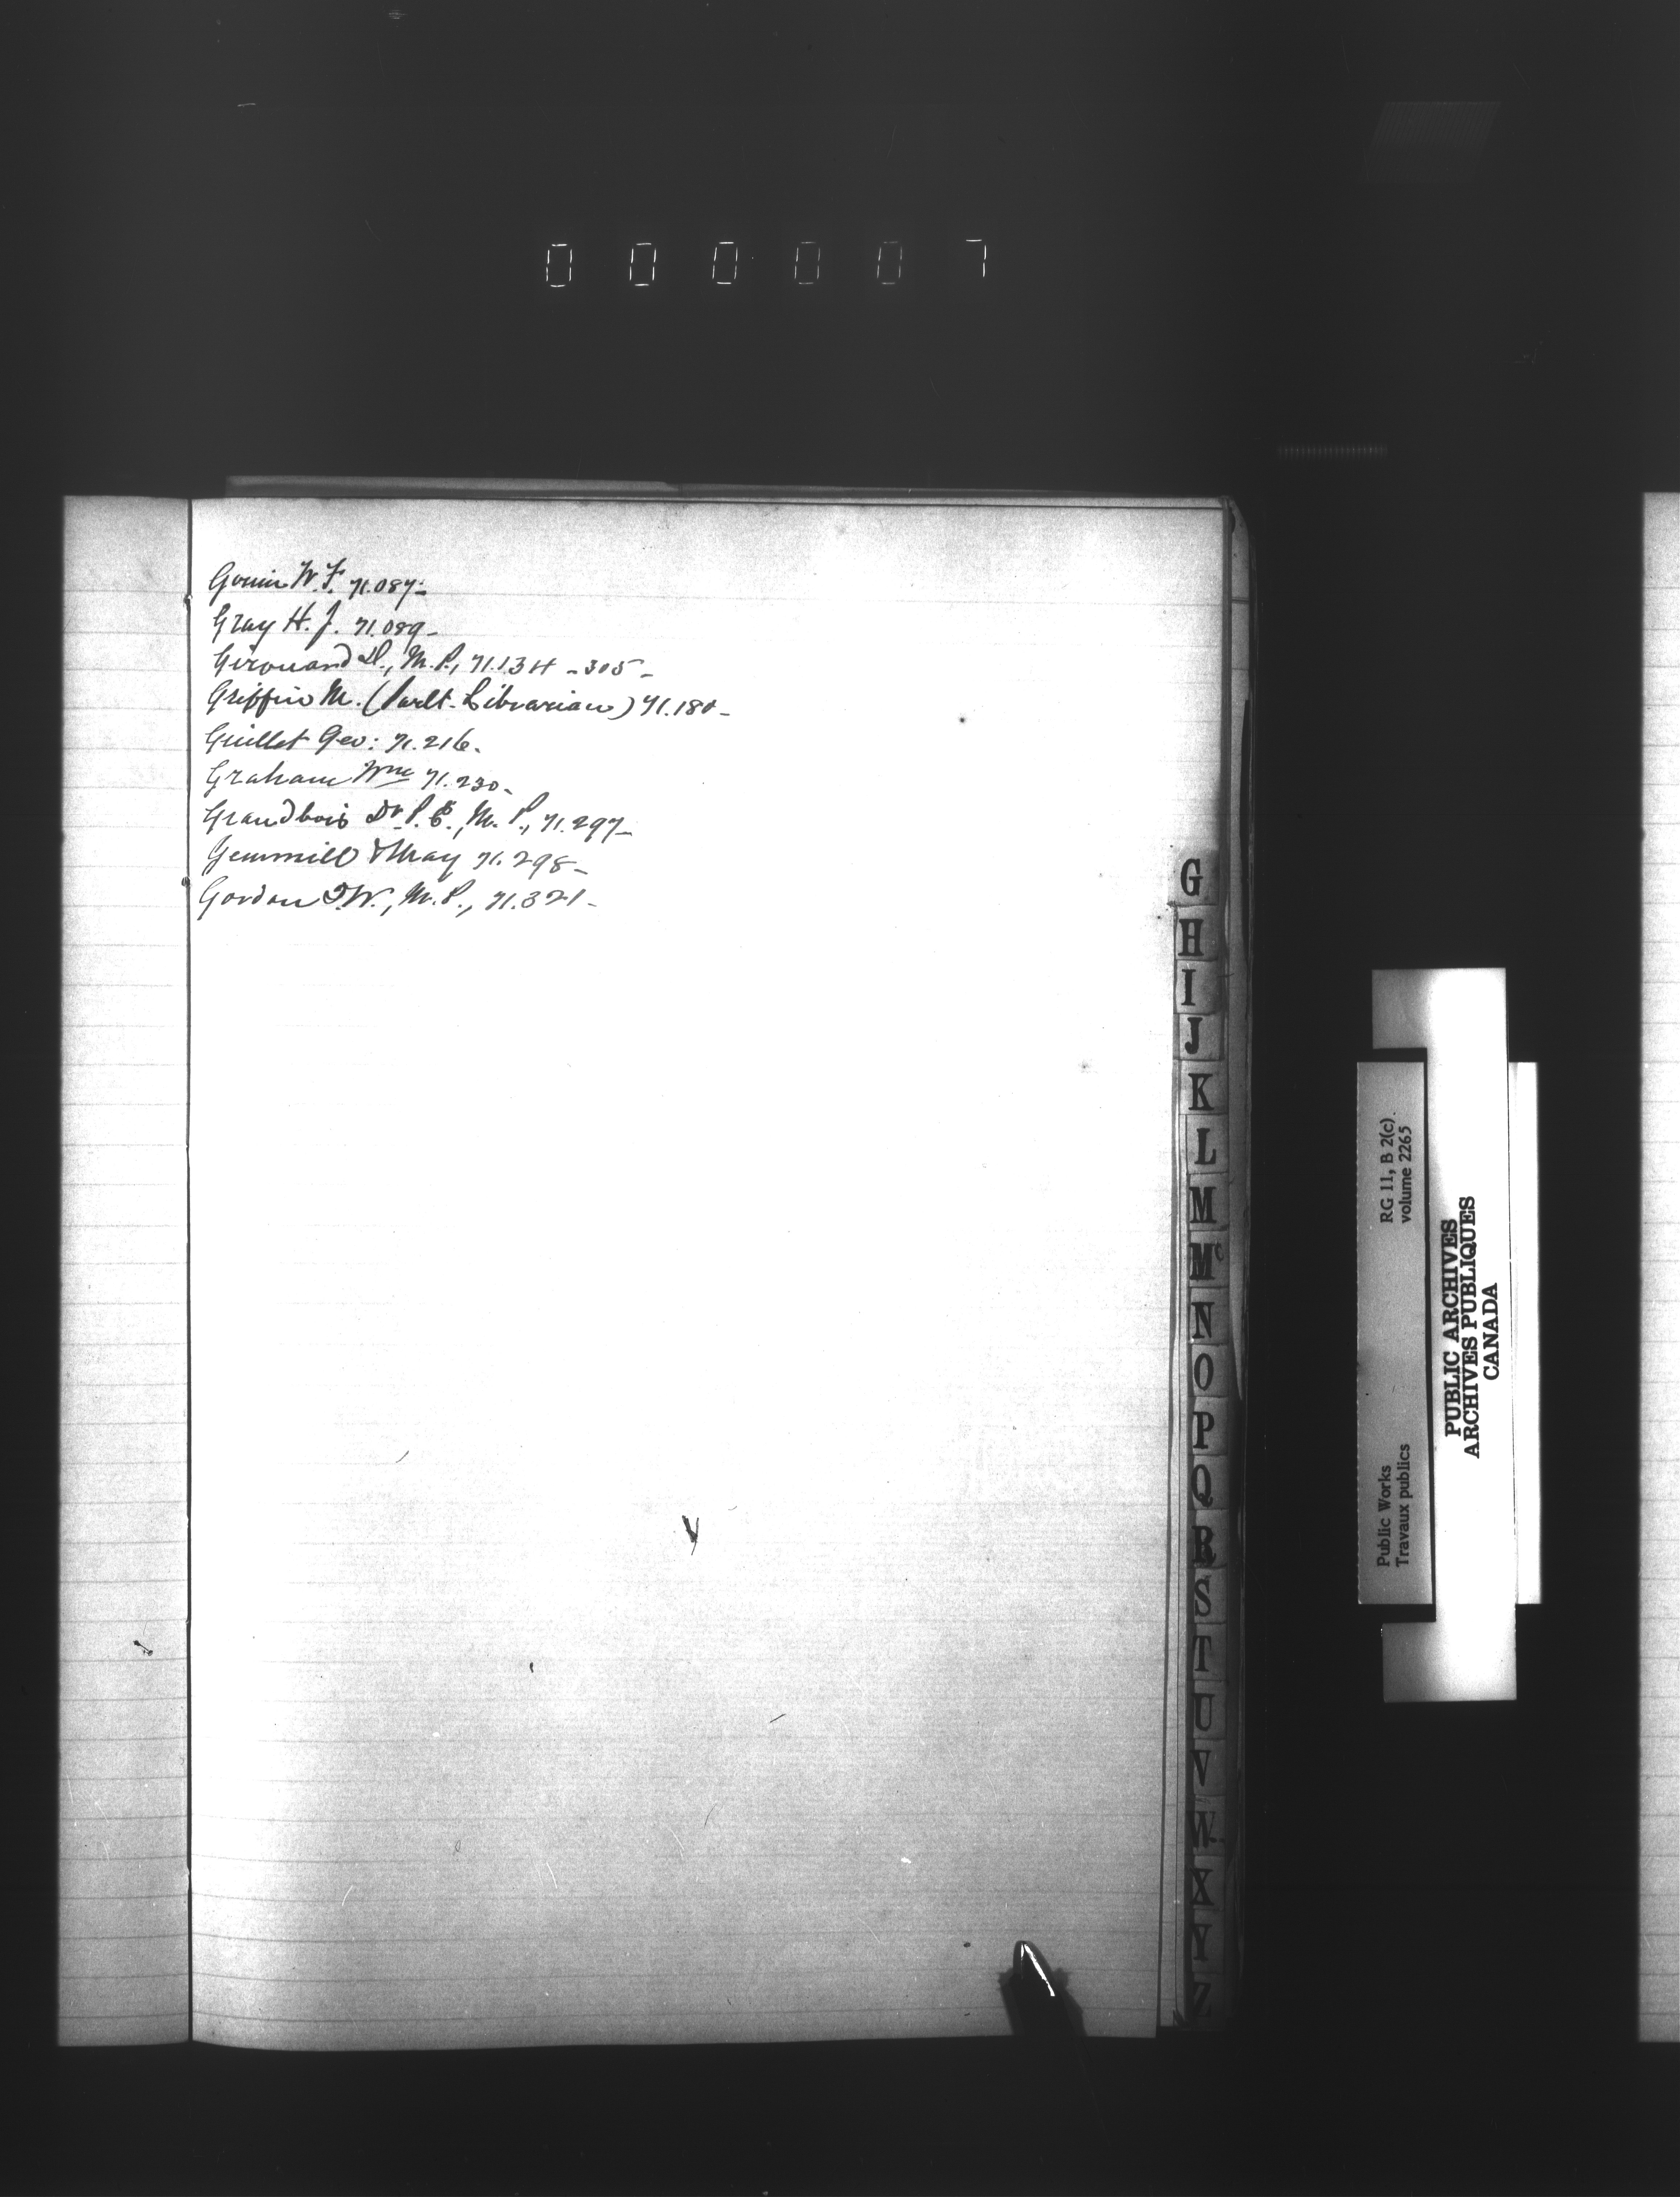 000007
Gouin W. F. 71.087-
Gray H. J. 71.089-
Girouard D., M.P., 71.134 - 305-
Griffin M. (Parlt. Librarian) 71.180-
Guillet Geo: 71.216.
Graham Wm 71.230-
Grandbois Dr P. E., M. P., 71.297-
Gemmill & May 71.298-
Gordon D. W., M.P., 71.321-
G
H
I
J
K
L
M
Mc
N
O
P
Q
R
S
T
U
V
W
X
Y
Z
Public Works
Travaux publics
RG 11, B 2(c).
volume 2265
PUBLIC ARCHIVES
ARCHIVES PUBLIQUES
CANADA